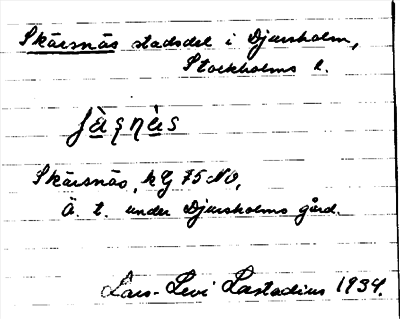 Skärsnäs stadsdel i Djursholm,
Stockholms l.
Skärsnäs, kG 75 NO,
Ä. t. under Djursholms gård.
Lars-Levi Læstadius 1934.